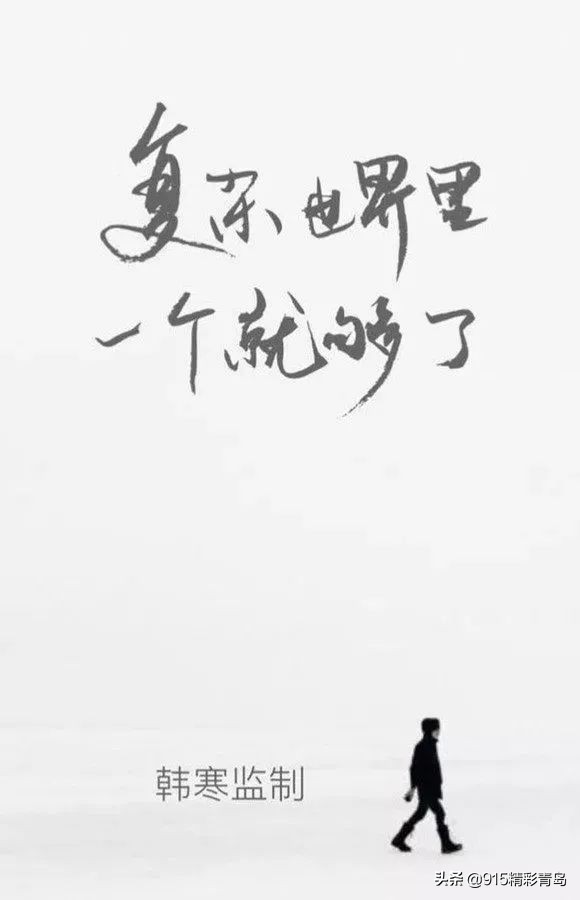 复杂世界里
一个就够了
韩寒监制
头条 @915精彩青岛